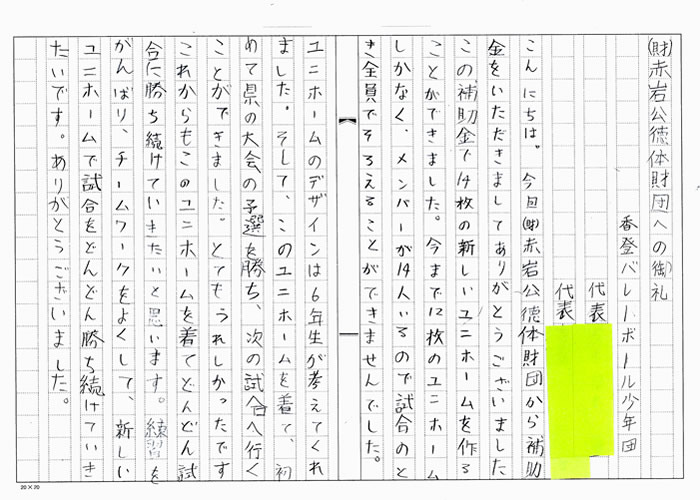 (財)赤岩公徳体財団への(御)礼
香登バレーボール少年団
代表
代表
こんにちは。今回(財)赤岩公徳体財団から補助
金をいただきましてありがとうございました
この補助金で14枚の新しいユニホームを作る
ことができました。今まで12枚のユニホーム
しかなく、メンバーが14人いるので試合のと
き全員でそろえることができませんでした。
ユニホームのデザインは6年生が考えてくれ
ました。そして、このユニホームを着て、初
めて県の大会の予選を勝ち、次の試合へ行く
ことができました。とてもうれしかったです
これからもこのユニホームを着てどんどん試
合に勝ち続けていきたいと思います。練習を
がんばり、チームワークをよくして、新しい
ユニホームで試合をどんどん勝ち続けていき
たいです。ありがとうございました。
20×20